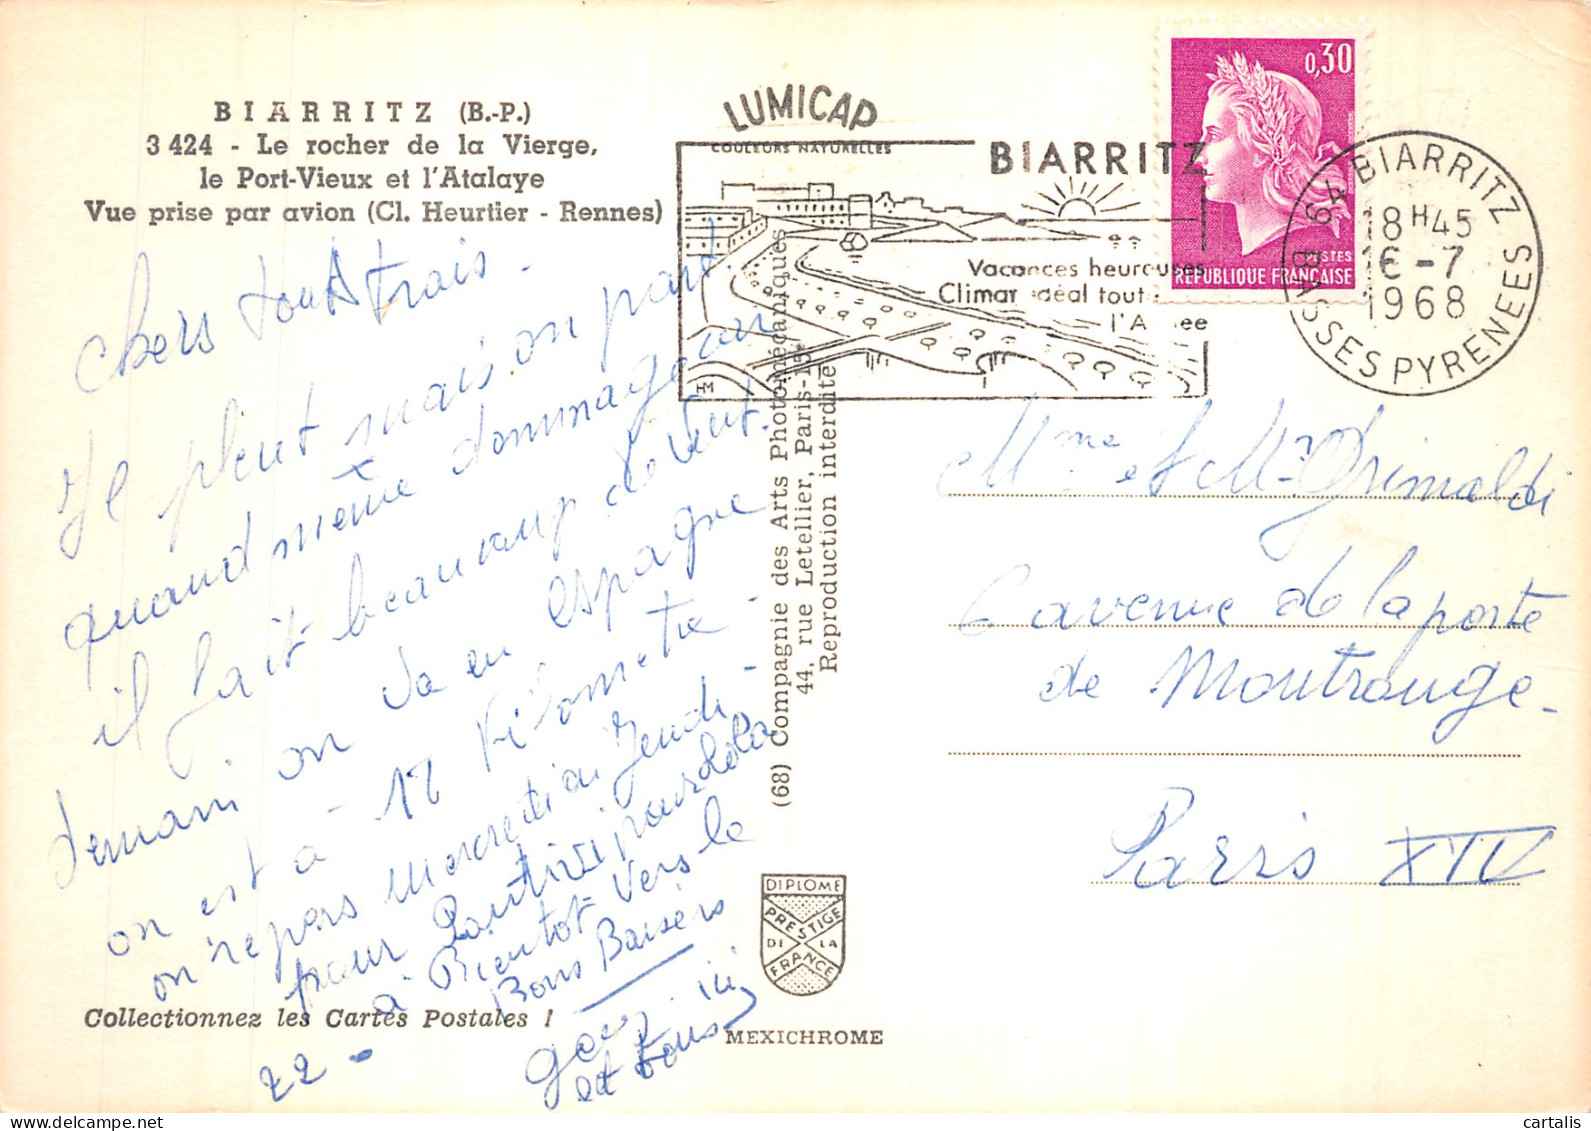 BIARRITZ (B.-P.)
3 424 - Le rocher de la Vierge,
le Port-Vieux et l'Atalaye
Vue prise par avion (Cl. Heurtier - Rennes)
LUMICAP
COULEURS NATURELLES
BIARRITZ
Vacances heureuses
Climat idéal toute
l'Année
HM
0,30
POSTES
REPUBLIQUE FRANÇAISE
64 BIARRITZ
18H45
16-7
1968
BASSES PYRENEES
Chers
Il pleut mais on part
quand même dommage car
il fait beaucoup de vent.
demain on va en espagne
on est à 17 Kilometre -
on repars mercredi ou Jeudi -
pour
à Bientot vers le
22 -
Bons Baisers
et tous
Mme et Mr Grimaldi
6 avenue de la porte
de Montrouge -
Paris XIV
(68) Compagnie des Arts Photomécaniques
44, rue Letellier, Paris-15e
Reproduction interdite
DIPLOME
PRESTIGE
DE LA
FRANCE
MEXICHROME
Collectionnez les Cartes Postales !
cartalis
www.delcampe.net